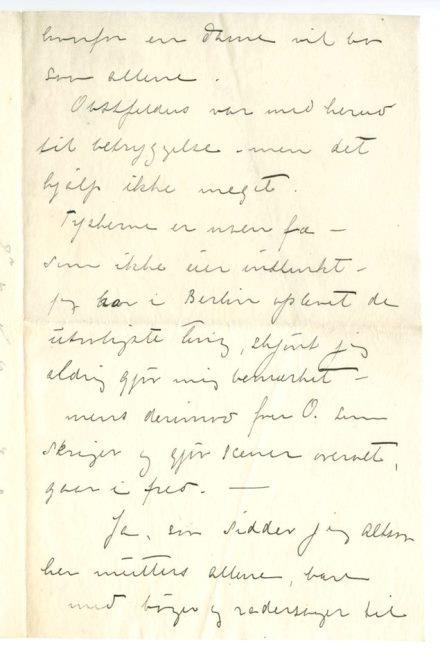 hvorfor en Dame vil bo
saa allene.
Obstfelders var med herud
til betryggelse - men det
hjalp ikke meget.
Tyskerne er noen fæ -
som ikke eier
jeg har i Berlin oplevet de
utroligste ting, skjønt jeg
aldrig gjør mig bemærket -
mens derimod fru O. som
skriger og gjør scener overalt,
gaar i fred. —
Ja, saa sidder jeg altsaa
her mutters allene, bare
med bøger og til